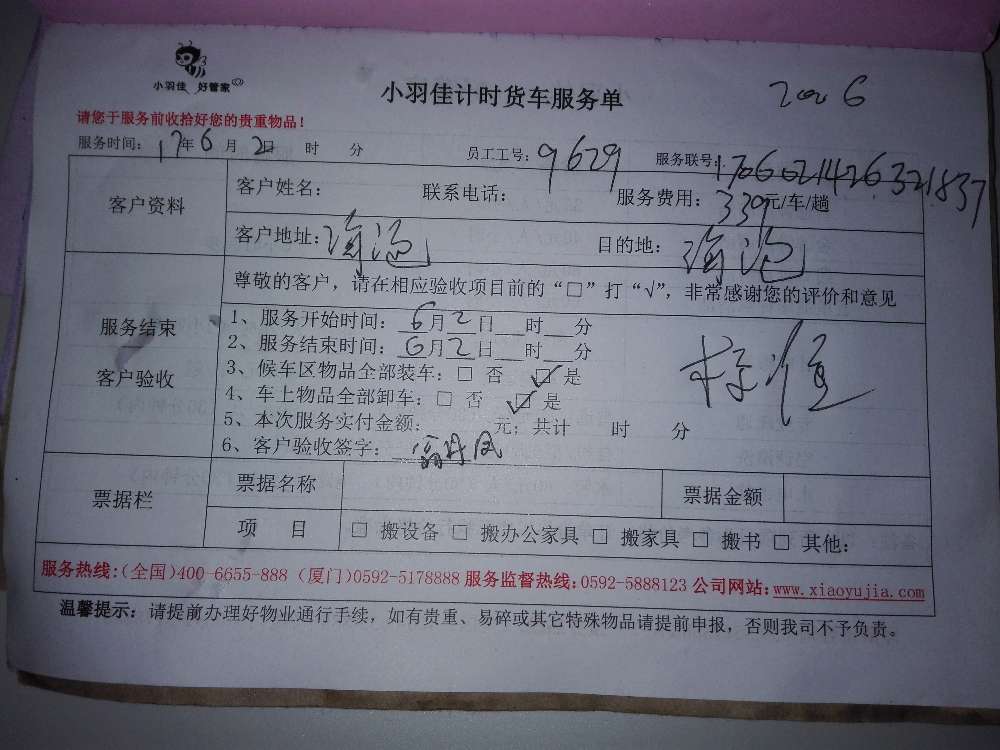 小羽佳 好管家
小羽佳计时货车服务单
2006
请您于服务前收拾好您的贵重物品！
服务时间：17年6月2日 时 分 员工工号：9629 服务联号：
客户资料
客户姓名： 联系电话： 服务费用：339元/车/趟
客户地址：海沧 目的地：海沧
服务结束
客户验收
尊敬的客户，请在相应验收项目前的“□”打“√”，非常感谢您的评价和意见
1、服务开始时间：6月2日 时 分
2、服务结束时间：6月2日 时 分
3、候车区物品全部装车：□ 否 ☑ 是
4、车上物品全部卸车：□ 否 ☑ 是
5、本次服务实付金额： 元；共计 时 分
6、客户验收签字：
票据栏
票据名称 票据金额
项 目 □ 搬设备 □ 搬办公家具 □ 搬家具 □ 搬书 □ 其他：
服务热线：（全国）400-6655-888（厦门）0592-5178888 服务监督热线：0592-5888123 公司网站：www.xiaoyujia.com
温馨提示：请提前办理好物业通行手续，如有贵重、易碎或其它特殊物品请提前申报，否则我司不予负责。